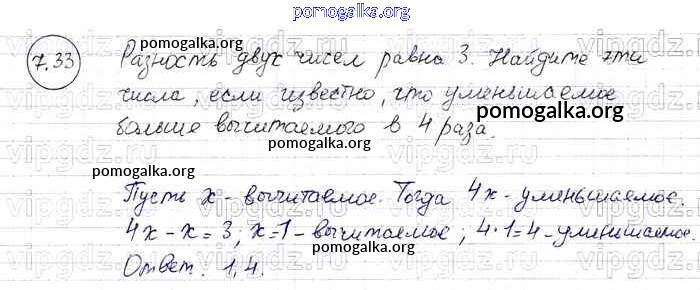 pomogalka.org
7.33 Разность двух чисел равна 3. Найдите эти
pomogalka.org pomogalka.org
числа, если известно, что уменьшаемое
pomogalka.org
больше вычитаемого в 4 раза.
pomogalka.org
vipgdz.ru
pomogalka.org
Пусть x - вычитаемое. Тогда 4x - уменьшаемое.
pomogalka.org
4x - x = 3; x = 1 - вычитаемое; 4·1=4 - уменьшаемое.
pomogalka.org
Ответ: 1,4.
pomogalka.org